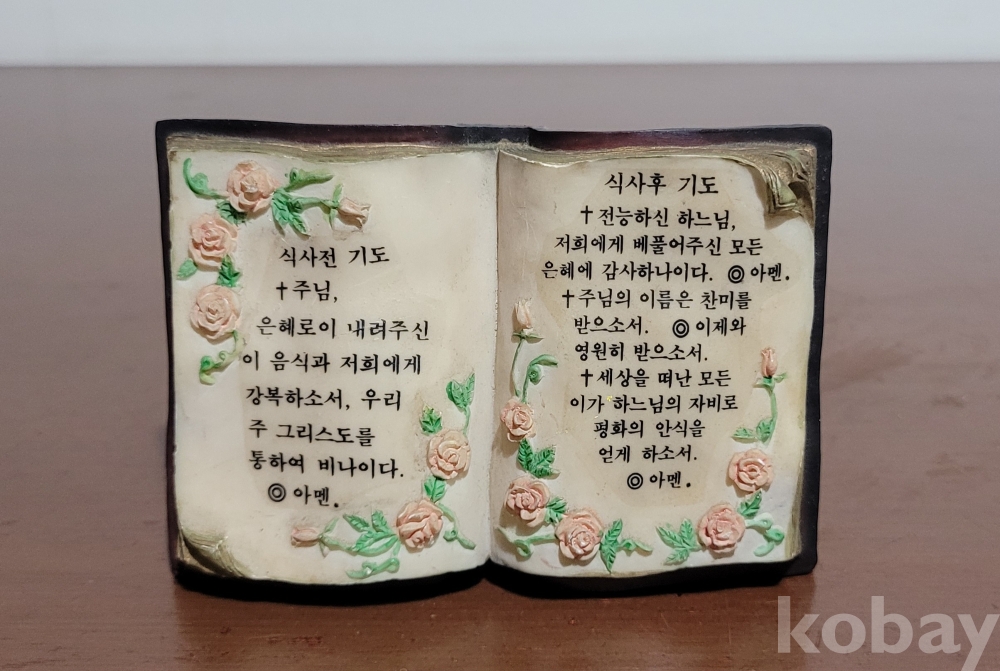 식사전 기도
✝주님,
은혜로이 내려주신
이 음식과 저희에게
강복하소서, 우리
주 그리스도를
통하여 비나이다.
◎ 아멘.
식사후 기도
✝전능하신 하느님,
저희에게 베풀어주신 모든
은혜에 감사하나이다. ◎ 아멘.
✝주님의 이름은 찬미를
받으소서. ◎ 이제와
영원히 받으소서.
✝세상을 떠난 모든
이가 하느님의 자비로
평화의 안식을
얻게 하소서.
◎ 아멘.
kobay